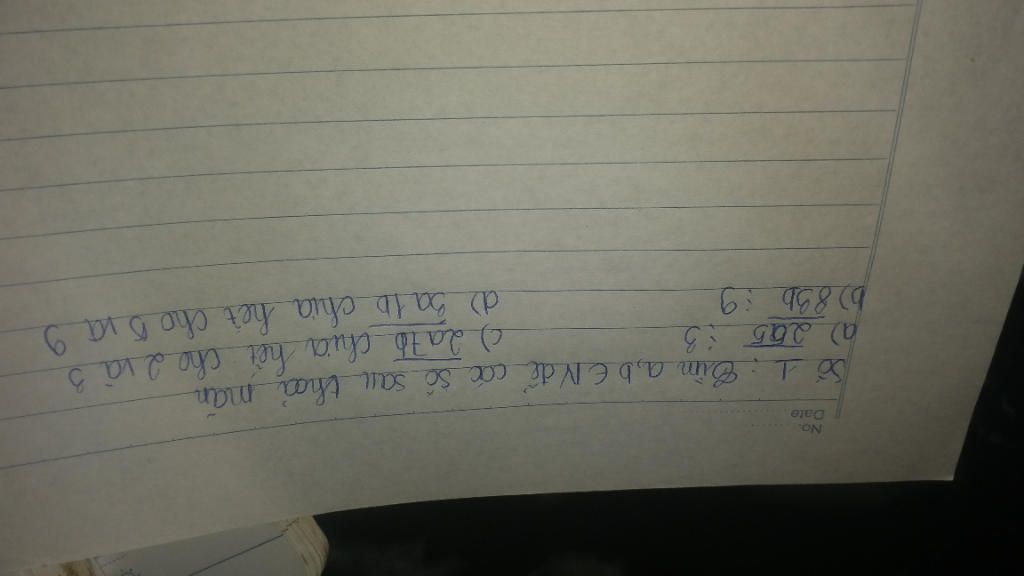 No.
Date
Số 1 : Tìm a,b ∈ N để các số sau thỏa mãn
a) 2a5 ⋮ 3 c) 2a7b chia hết cho 2 và 3
b) 83b ⋮ 9 d) 3a1b chia hết cho 5 và 9